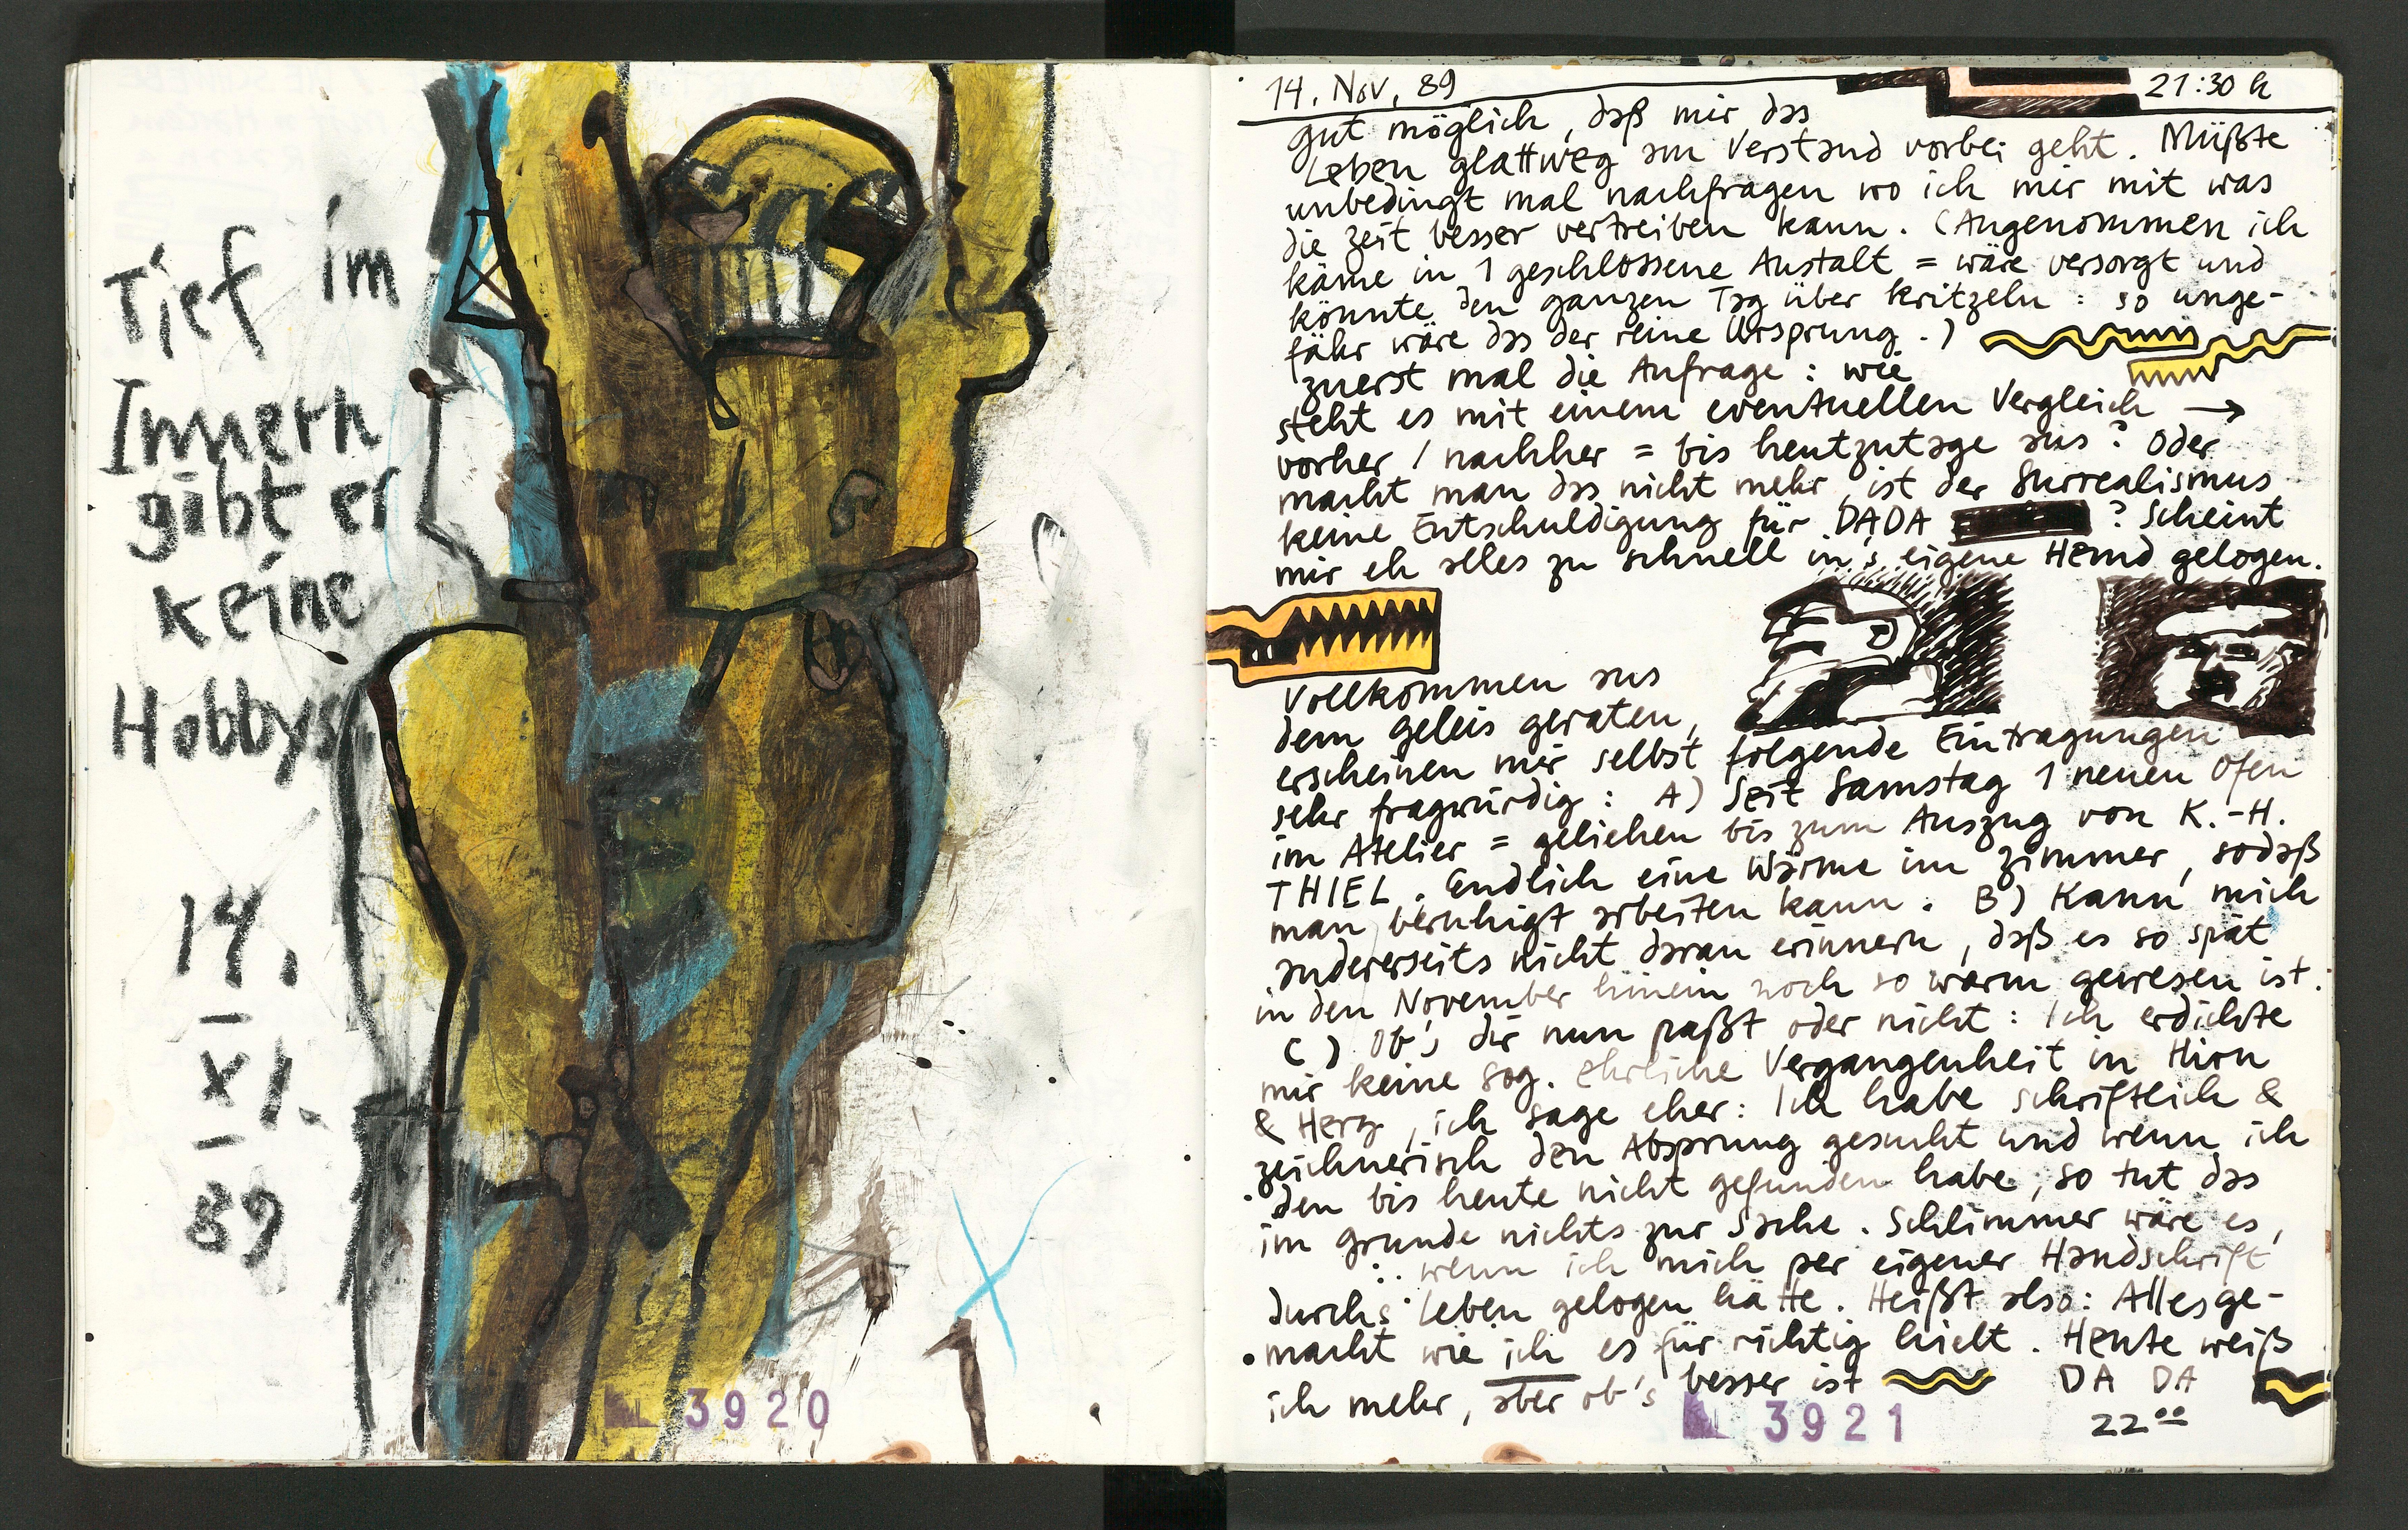 Tief im
Innern
gibt er
keine
Hobbys
14.
XI.
89
3920
14. Nov, 89 21:30 h
gut möglich, daß mir das
Leben glattweg am Verstand vorbei geht. Müßte
unbedingt mal nachfragen wo ich mir mit was
die Zeit besser vertreiben kann. (Angenommen ich
käme in 1 geschlossene Anstalt = wäre versorgt und
könnte den ganzen Tag über kritzeln: so unge-
fähr wäre das der reine Ursprung.)
zuerst mal die Anfrage: wie
steht es mit einem eventuellen Vergleich →
vorher / nachher = bis heutzutage aus? Oder
macht man das nicht mehr, ist der Surrealismus
keine Entschuldigung für DADA ? Scheint
mir eh alles zu schnell in's eigene Hemd gelogen.
Vollkommen aus
dem Geleis geraten,
erscheinen mir selbst folgende Eintragungen
sehr fragwürdig: A) Seit Samstag 1 neuen Ofen
im Atelier = geliehen bis zum Auszug von K.-H.
THIEL. Endlich eine Wärme im Zimmer, sodaß
man beruhigt arbeiten kann. B) Kann mich
andererseits nicht daran erinnern, daß es so spät
in den November hinein noch so warm gewesen ist.
C) Ob's dir nun paßt oder nicht: Ich erdichte
mir keine sog. ehrliche Vergangenheit in Hirn
& Herz, ich sage eher: Ich habe schriftlich &
zeichnerisch den Absprung gesucht und wenn ich
den bis heute nicht gefunden habe, so tut das
im Grunde nichts zur Sache. Schlimmer wäre es,
wenn ich mich per eigener Handschrift
durchs Leben gelogen hätte. Heißt also: Alles ge-
macht wie ich es für richtig hielt. Heute weiß
ich mehr, aber ob's besser ist DA DA
22⁰⁰
3921